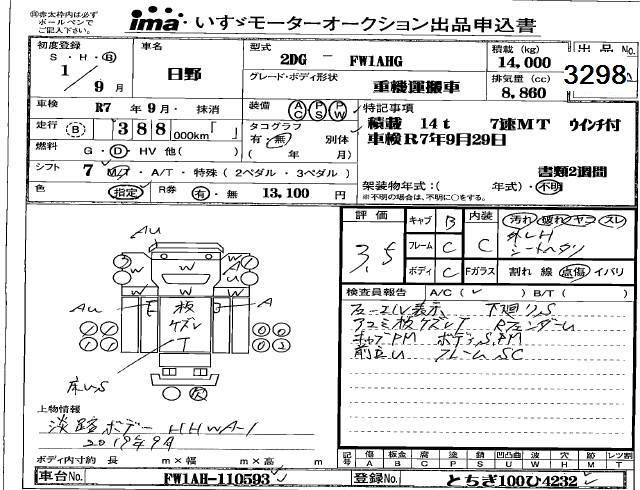 ㊟赤太枠内は必ず
ボールペンで
ご記入下さい。
ima いすゞモーターオークション出品申込書
初度登録
S・H・Ⓡ
1 / 9 月
車名
日野
型式
2DG － FW1AHG
積載 (kg)
14,000
出品No.
3298
グレード・ボディ形状
重機運搬車
排気量 (cc)
8,860
車検 R7 年 9 月・ 抹消
装備 AC PS PW
特記事項
積載 14t 7速MT ウインチ付
車検R7年9月29日
書類2週間
走行 388 000km「 」
タコグラフ
有・無 別体
( 年 月)
燃料 G・D・HV 他( )
シフト 7 M/T・A/T・特殊(2ペダル・3ペダル)
色 指定 R券 有・無 13,100 円
架装物年式：( 年式)・不明
※不明の場合は、不明に○をする。
評価
3.5
キャブ B
フレーム C
ボディ C
内装
C
汚れ 破れ ヤコ スレ
Fガラス 割れ 線 点傷 イバリ
検査員報告 A/C( ) B/T( )
フューエル表示、 下廻りS
アユミ板ケズレT RフェンダーU
キャブPM ボディS,PM
前立U フレームSC
AU
A
W
AU
板
ケズレ
T
A
床U.S
上物情報
淡路ボデー HHWA-1
2019年9月
ボディ内寸約 長 m×幅 m×高 m
記号 傷 板金 腐 塗 錆 凹凸曲 波 穴 跡 レツ割
A B C P S U W H M T
車台No. FW1AH-110593
登録No. とちぎ100ひ4232